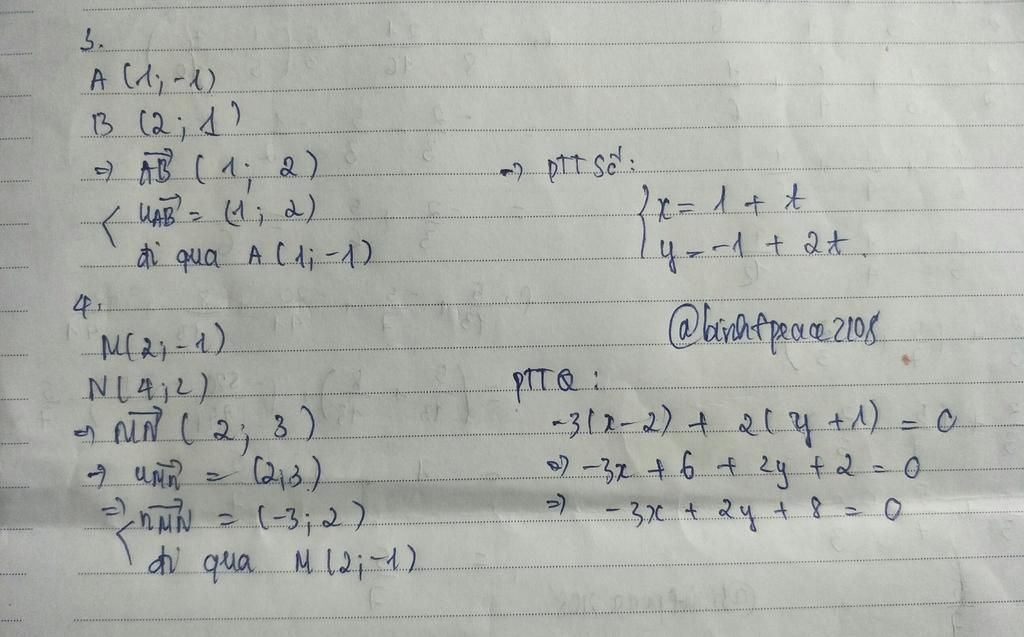 3.
A (1; -1)
B (2; 1)
⇒ AB→ (1; 2)
{ uAB→ = (1; 2)
đi qua A (1; -1)
→ PTTSố:
{ x = 1 + t
y = -1 + 2t.
4.
M(2; -1)
N(4; 2)
⇒ MN→ (2; 3)
→ uMN→ = (2; 3)
⇒ { nMN→ = (-3; 2)
đi qua M(2; -1)
@binhtpeace2108
PTTQ:
-3(x-2) + 2(y+1) = 0
⇒ -3x + 6 + 2y + 2 = 0
⇒ -3x + 2y + 8 = 0